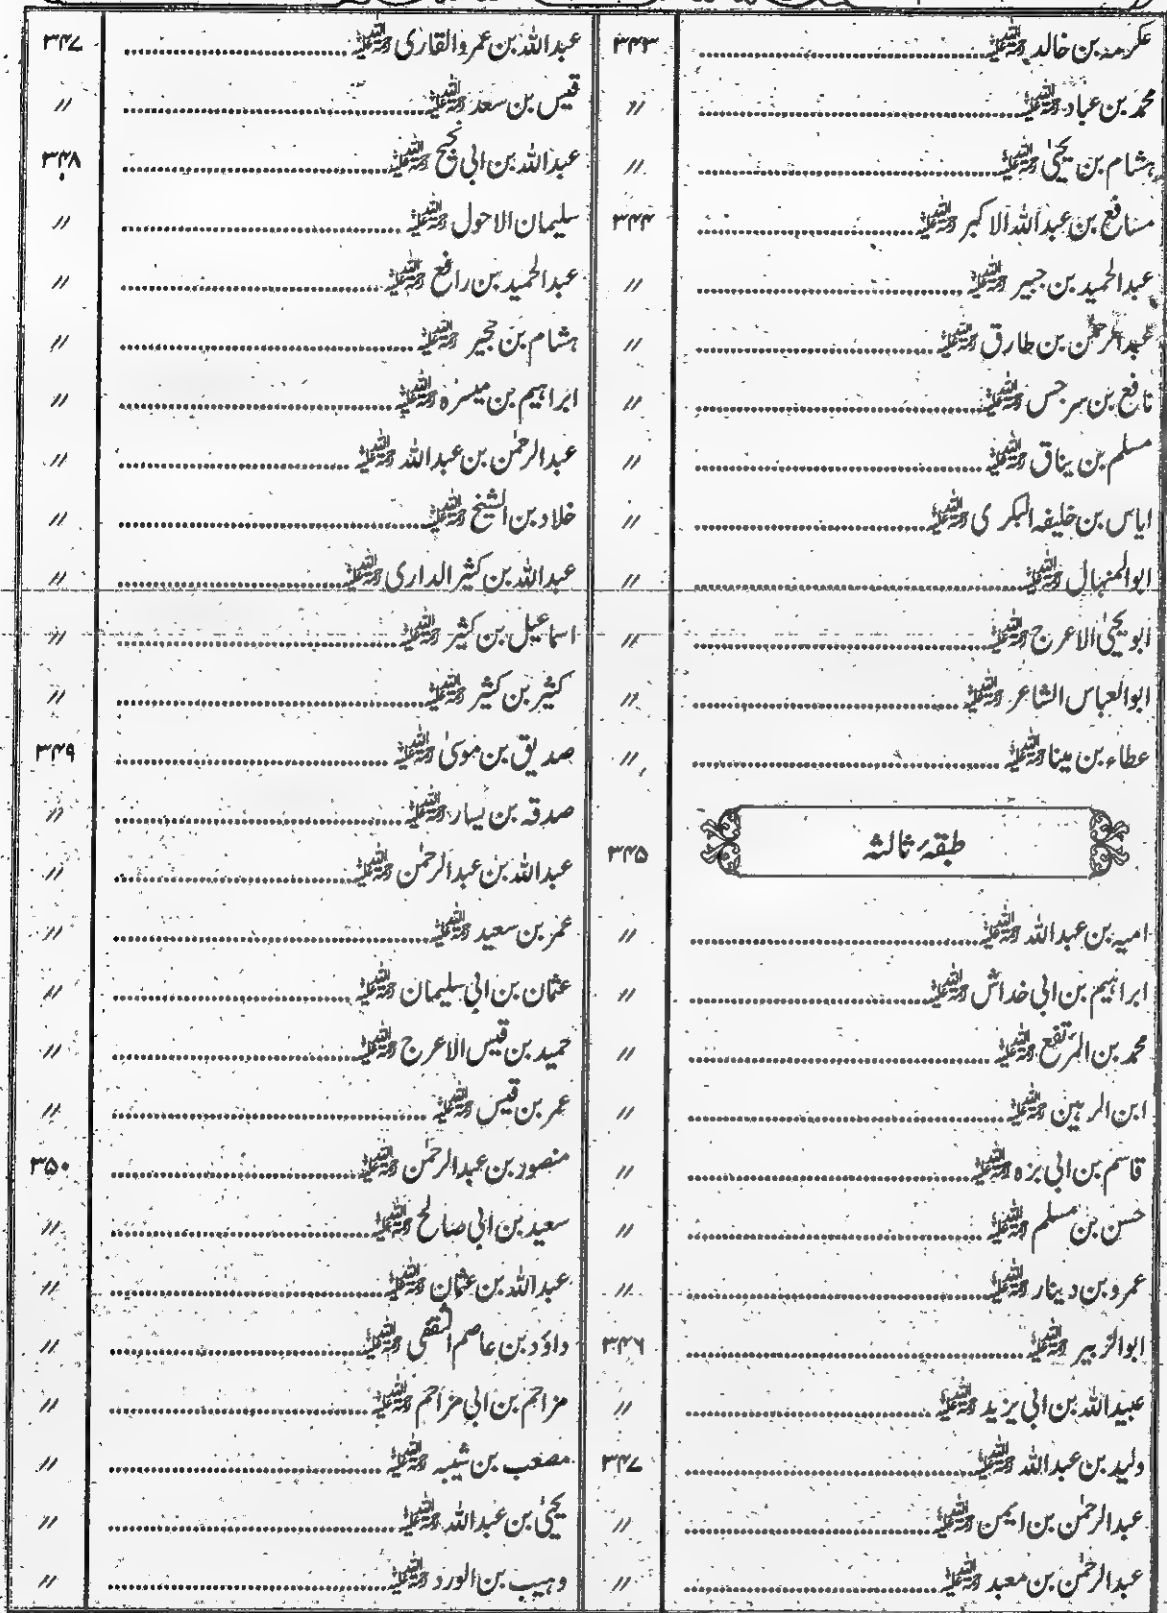 عکرمہ بن خالد رحمۃ اللہ علیہ ........ ۳۴۳
محمد بن عباد رحمۃ اللہ علیہ ........ //
ہشام بن یحییٰ رحمۃ اللہ علیہ ........ //
مسافع بن عبداللہ الاکبر رحمۃ اللہ علیہ ........ ۳۴۴
عبدالحمید بن جبیر رحمۃ اللہ علیہ ........ //
عبدالرحمٰن بن طارق رحمۃ اللہ علیہ ........ //
نافع بن سرجس رحمۃ اللہ علیہ ........ //
مسلم بن یناق رحمۃ اللہ علیہ ........ //
ایاس بن خلیفہ البکری رحمۃ اللہ علیہ ........ //
ابوالمنہال رحمۃ اللہ علیہ ........ //
ابویحییٰ الاعرج رحمۃ اللہ علیہ ........ //
ابوالعباس الشاعر رحمۃ اللہ علیہ ........ //
عطاء بن مینا رحمۃ اللہ علیہ ........ //
طبقۂ ثالثہ ۳۴۵
امیہ بن عبداللہ رحمۃ اللہ علیہ ........ //
ابراہیم بن ابی خداش رحمۃ اللہ علیہ ........ //
محمد بن المرتفع رحمۃ اللہ علیہ ........ //
ابن الرہین رحمۃ اللہ علیہ ........ //
قاسم بن ابی بزہ رحمۃ اللہ علیہ ........ //
حسن بن مسلم رحمۃ اللہ علیہ ........ //
عمرو بن دینار رحمۃ اللہ علیہ ........ //
ابوالزبیر رحمۃ اللہ علیہ ........ ۳۴۶
عبیداللہ بن ابی یزید رحمۃ اللہ علیہ ........ //
ولید بن عبداللہ رحمۃ اللہ علیہ ........ ۳۴۷
عبدالرحمٰن بن ایمن رحمۃ اللہ علیہ ........ //
عبدالرحمٰن بن معبد رحمۃ اللہ علیہ ........ //
عبداللہ بن عمرو القاری رحمۃ اللہ علیہ ........ ۳۴۷
قیس بن سعد رحمۃ اللہ علیہ ........ //
عبداللہ بن ابی نجیح رحمۃ اللہ علیہ ........ ۳۴۸
سلیمان الاحول رحمۃ اللہ علیہ ........ //
عبدالحمید بن رافع رحمۃ اللہ علیہ ........ //
ہشام بن حجیر رحمۃ اللہ علیہ ........ //
ابراہیم بن میسرہ رحمۃ اللہ علیہ ........ //
عبدالرحمٰن بن عبداللہ رحمۃ اللہ علیہ ........ //
خلاد بن الشیخ رحمۃ اللہ علیہ ........ //
عبداللہ بن کثیر الداری رحمۃ اللہ علیہ ........ //
اسماعیل بن کثیر رحمۃ اللہ علیہ ........ //
کثیر بن کثیر رحمۃ اللہ علیہ ........ //
صدیق بن موسیٰ رحمۃ اللہ علیہ ........ ۳۴۹
صدقہ بن یسار رحمۃ اللہ علیہ ........ //
عبداللہ بن عبدالرحمٰن رحمۃ اللہ علیہ ........ //
عمر بن سعید رحمۃ اللہ علیہ ........ //
عثمان بن ابی سلیمان رحمۃ اللہ علیہ ........ //
حمید بن قیس الاعرج رحمۃ اللہ علیہ ........ //
عمر بن قیس رحمۃ اللہ علیہ ........ //
منصور بن عبدالرحمٰن رحمۃ اللہ علیہ ........ ۳۵۰
سعید بن ابی صالح رحمۃ اللہ علیہ ........ //
عبداللہ بن عثمان رحمۃ اللہ علیہ ........ //
داؤد بن عاصم الثقفی رحمۃ اللہ علیہ ........ //
مزاحم بن ابی مزاحم رحمۃ اللہ علیہ ........ //
مصعب بن شیبہ رحمۃ اللہ علیہ ........ //
یحییٰ بن عبداللہ رحمۃ اللہ علیہ ........ //
وہیب بن الورد رحمۃ اللہ علیہ ........ //